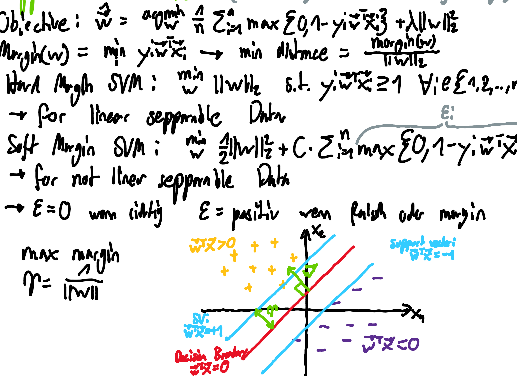 Objective: ŵ = argmin_w 1/n Σ_{i=1}^n max{0, 1-y_i w^T x_i} + λ||w||_2^2
Margin(w) = min_i y_i w^T x_i → min distance = margin(w)/||w||_2
Hard Margin SVM: min_w ||w||_2 s.t. y_i w^T x_i ≥ 1 ∀i∈{1,2,...,n
→ for linear sepparable Data
ε_i
Soft Margin SVM: min_w 1/2||w||_2^2 + C·Σ_{i=1}^n max{0, 1-y_i w^T x
→ for not linear sepparable Data
→ ε=0 wenn richtig ε = positiv wenn falsch oder margin
max margin
γ = 1/||w||
w^T x > 0
x_2
Support vector:
w^T x = -1
γ
x_1
SV:
w^T x = +1
w^T x < 0
Decision Boundary
w^T x = 0